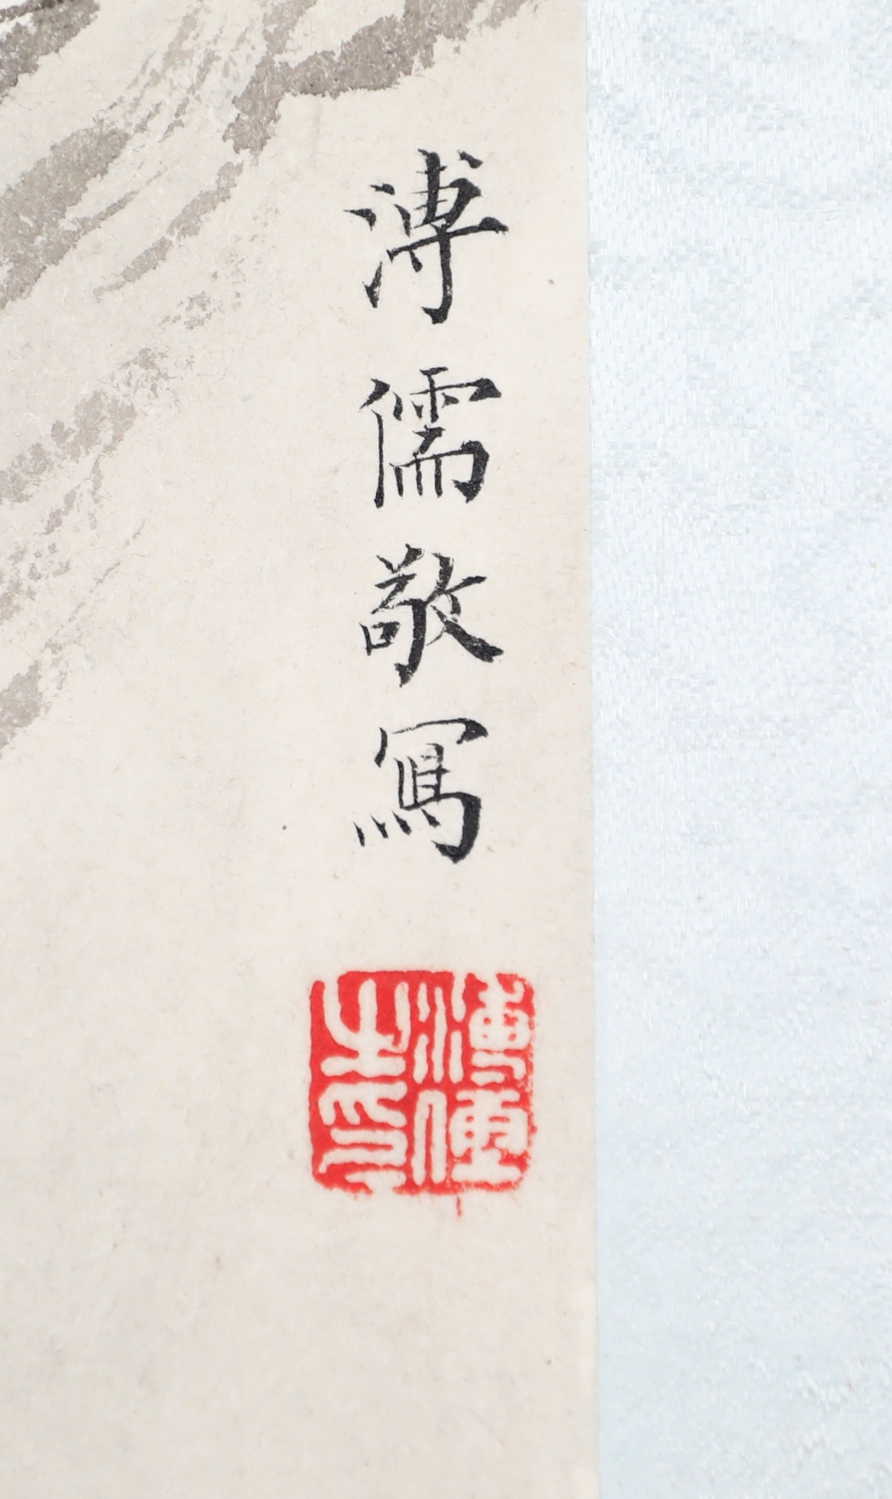 溥儒敬冩
溥儒
之印